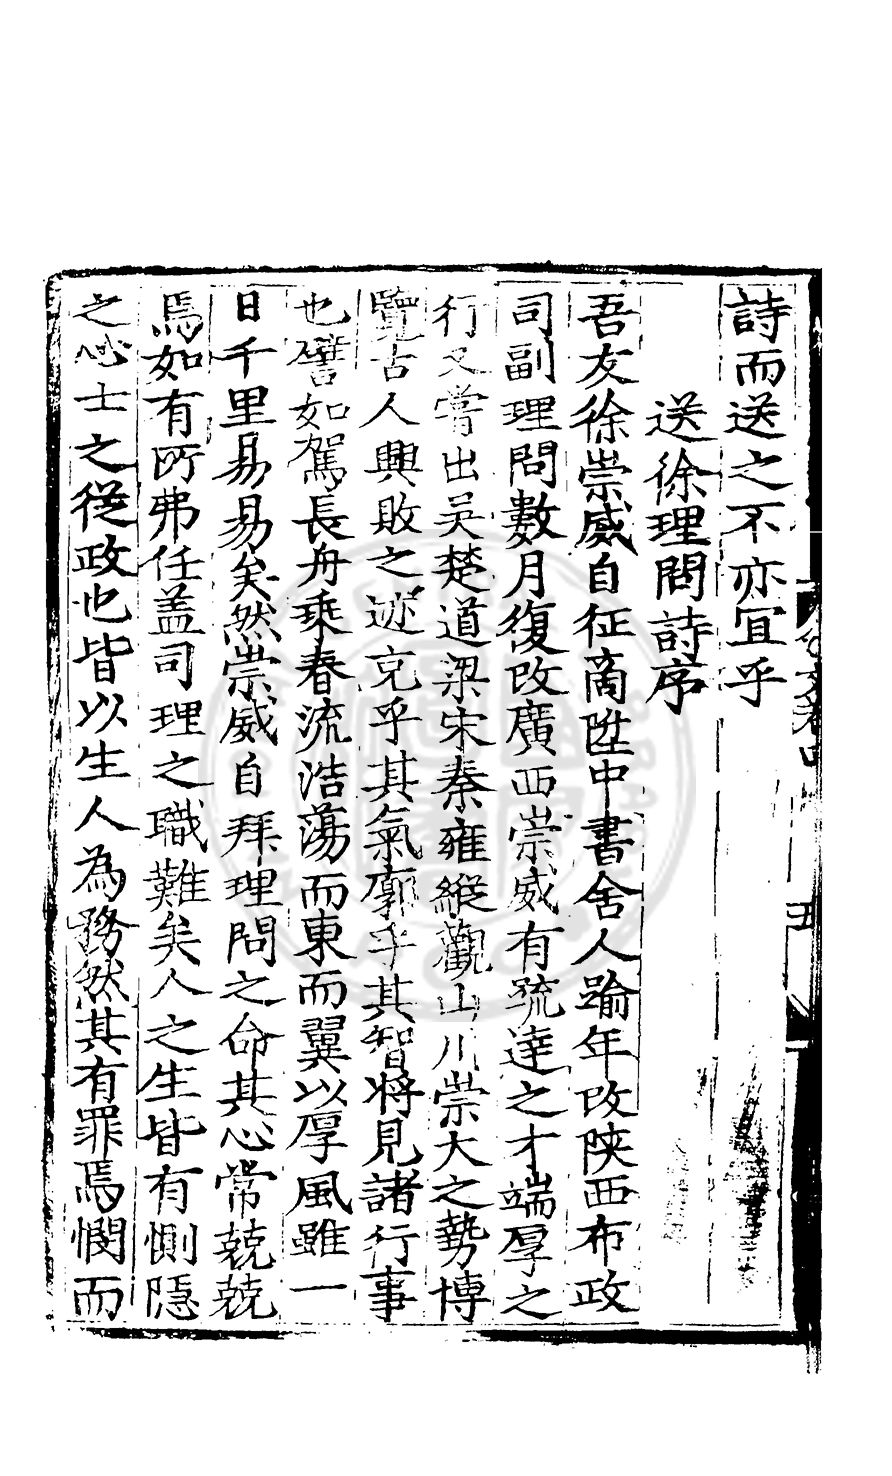 詩而送之不亦宜乎
送徐理問詩序
吾友徐崇威自征商陞中書舍人踰年改陝西布政
司副理問數月復改廣西崇威有疏達之才端厚之
行又嘗出吳楚道梁宋秦雍縱觀山川崇大之勢博
覽古人興敗之迹充乎其氣廓乎其智將見諸行事
也譬如駕長舟乘春流浩蕩而東而翼以厚風雖一
日千里易易矣然崇威自拜理問之命其心常兢兢
焉如有所弗任蓋司理之職難矣人之生皆有惻隱
之心士之從政也皆以生人為務然其有罪焉憫而
文卷四
五